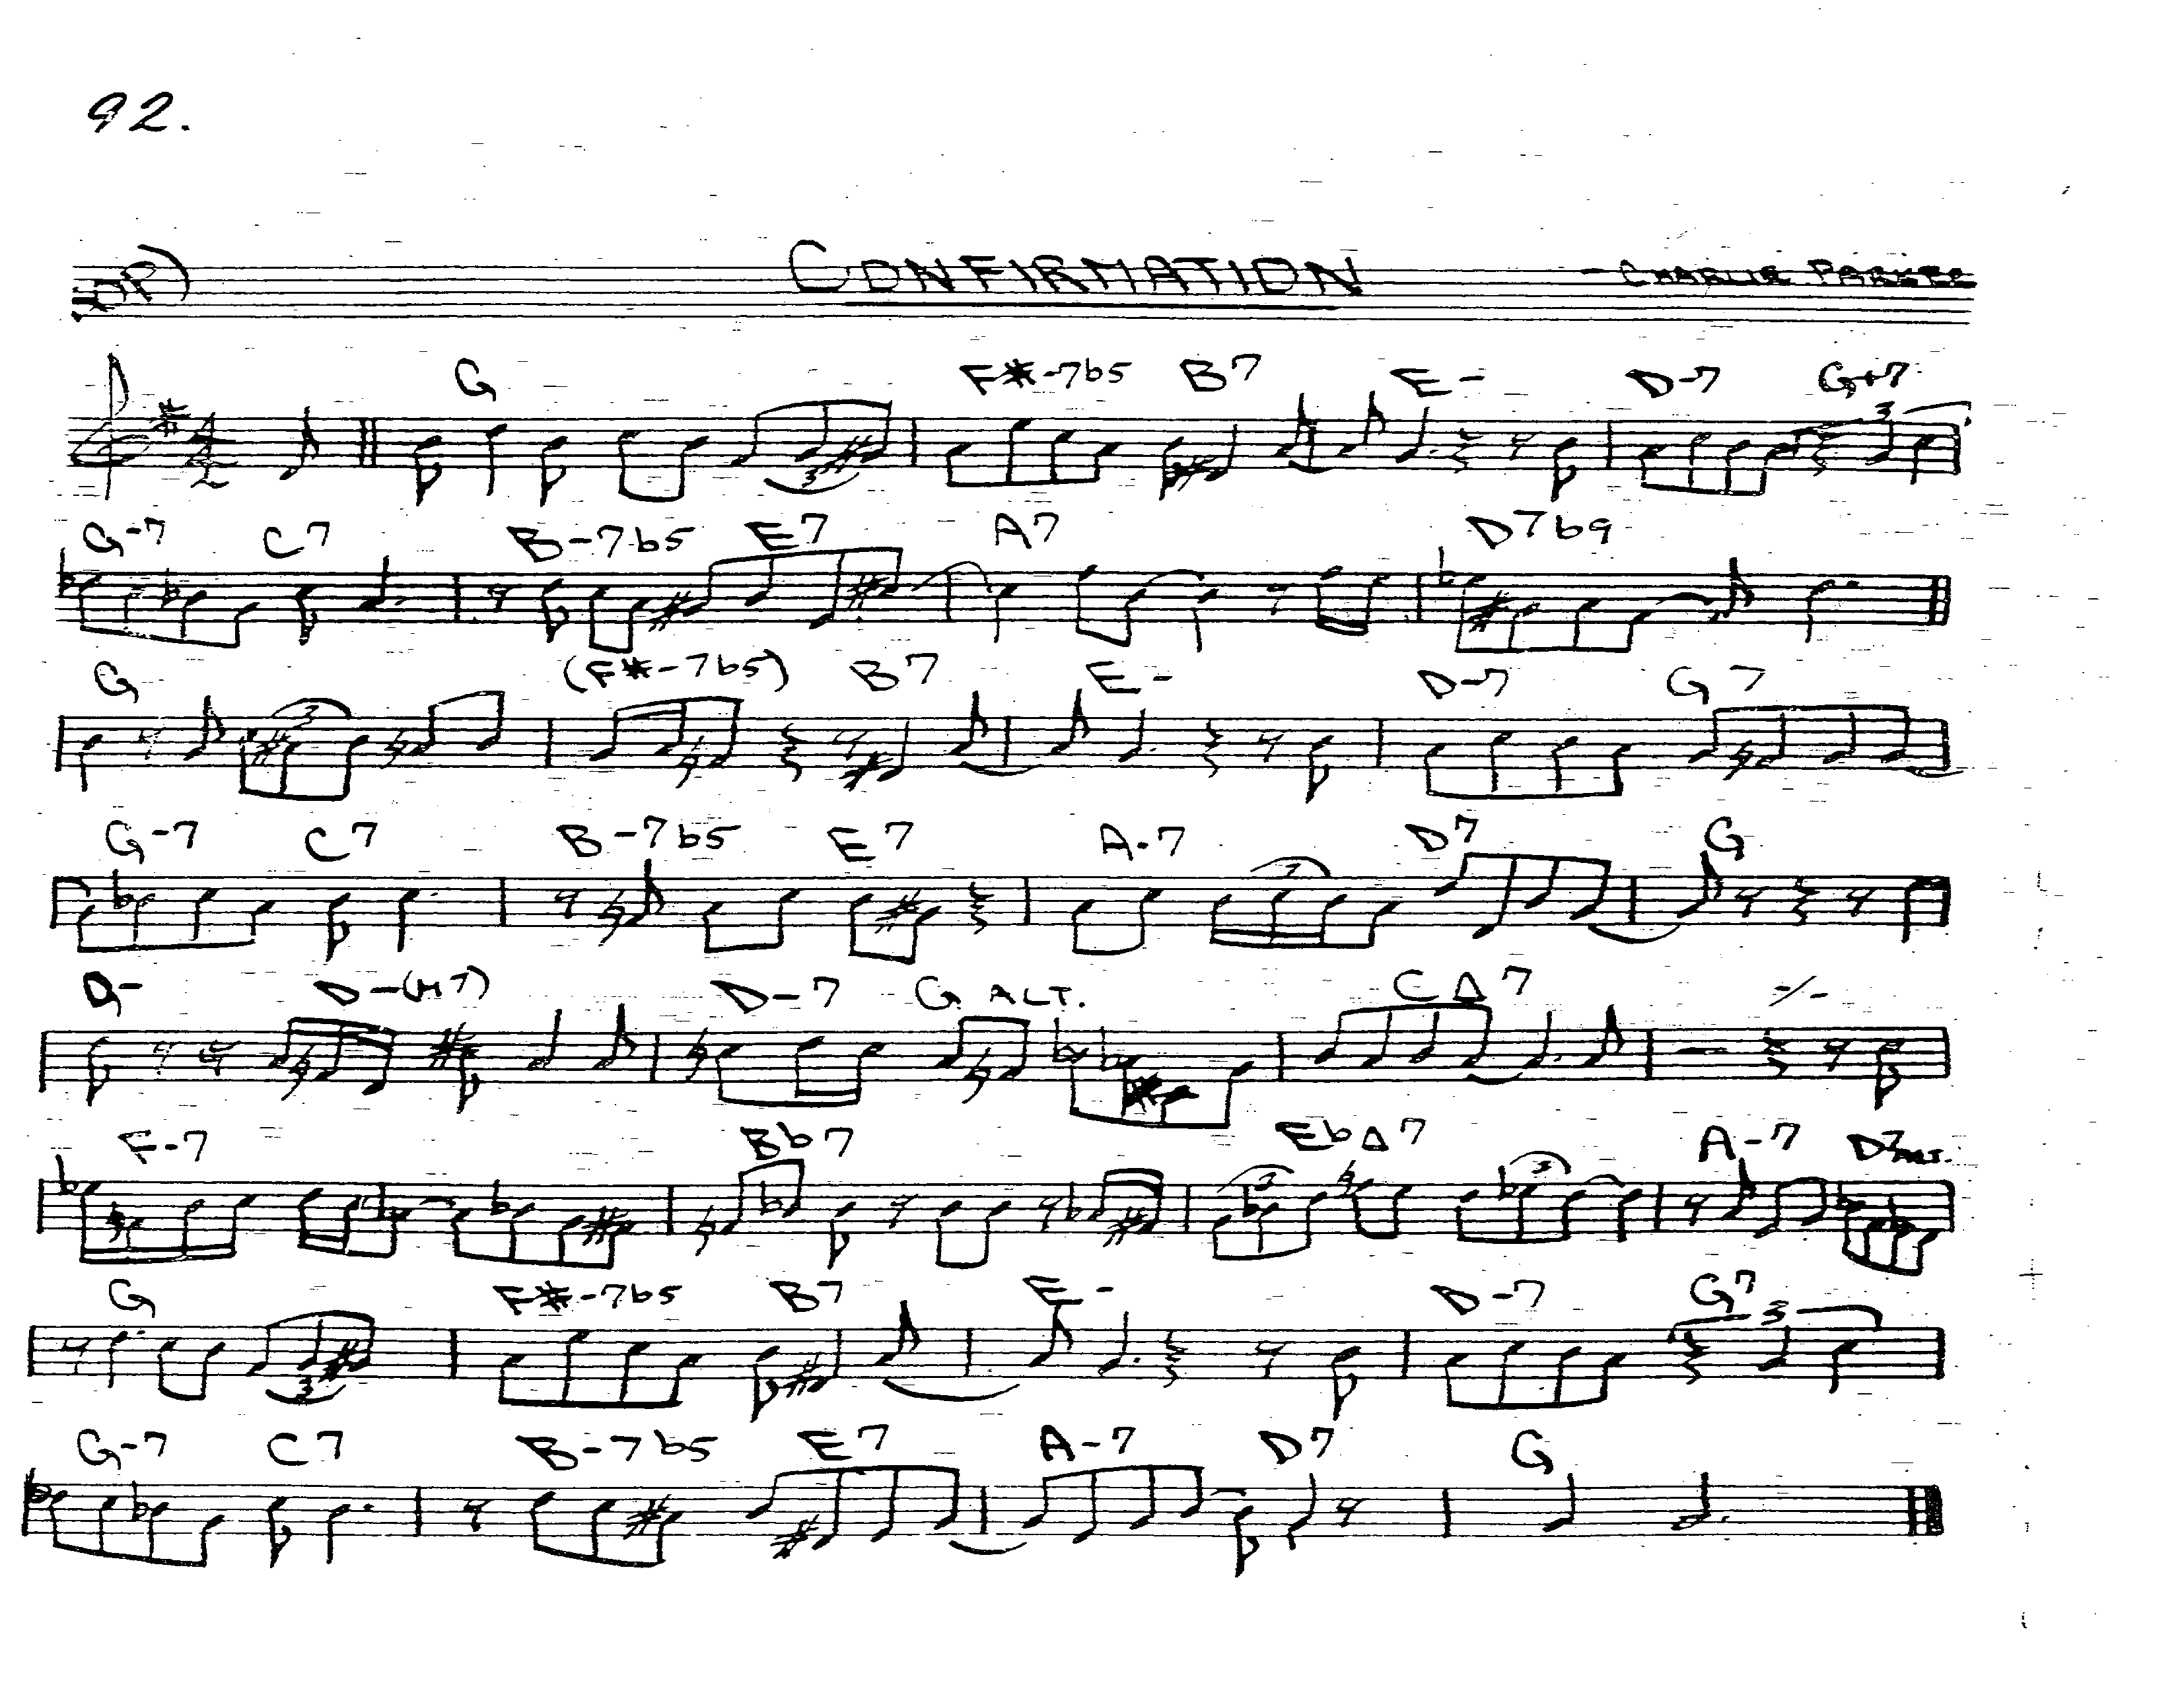 92.
(UP) CONFIRMATION - CHARLIE PARKER
G F#-7b5 B7 E- D-7 G+7
3 3
G-7 C7 B-7b5 E7 A7 D7b9
G (F#-7b5) B7 E- D-7 G7
3
G-7 C7 B-7b5 E7 A-7 D7 G
3
D- D-(M7) D-7 G ALT. CΔ7 -/-
F-7 Bb7 EbΔ7 A-7 D7ALT.
3 3
G F#-7b5 B7 E- D-7 G7
3 3
G-7 C7 B-7b5 E7 A-7 D7 G